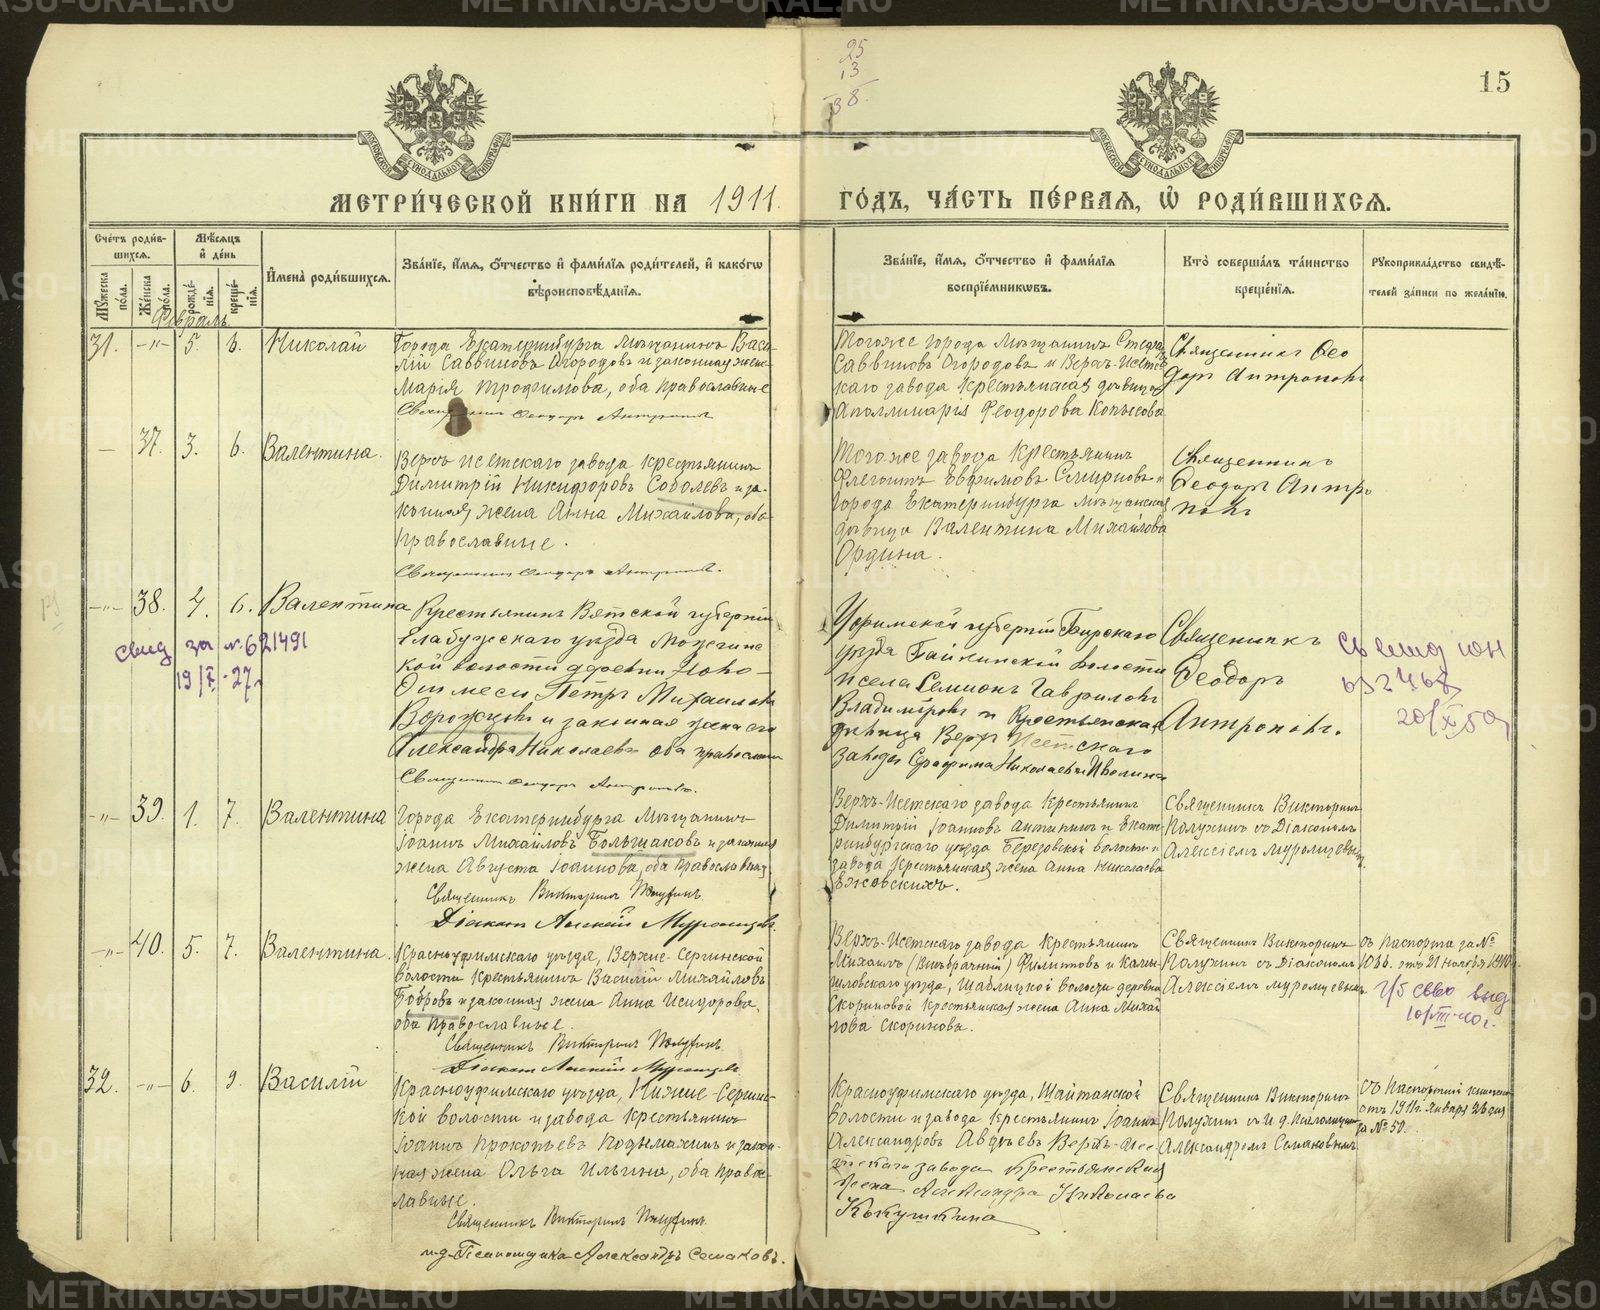 25
13
38.
15
МЕТРИ́ЧЕСКОЙ КНИ́ГИ НА 1911 ГО́ДЪ, ЧА́СТЬ ПЕ́РВАЯ, Ѽ РОДИ́ВШИХСЯ.
Сче́тъ роди́в-
шихся.
Мѣ́сяцъ
и҆ де́нь
Мꙋ́жеска
по́ла.
Же́нска
по́ла.
рожде́-
нїя.
креще́-
нїя.
И҆мена̀ роди́вшихся.
Зва́нїе, и҆́мя, ѻ҆́тчество и҆ фами́лїя роди́телей, и҆ како́гѡ
вѣроисповѣ́данїя.
Зва́нїе, и҆́мя, ѻ҆́тчество и҆ фами́лїя
воспрїе́мникѡвъ.
Кто̀ соверша́лъ та́инство
креще́нїя.
Рꙋкоприкла́дство свидѣ́-
телей за́писи по жела́нїю.
Февраль.
31. -"- 5. 6. Николай
Города Екатеринбурга мѣщанинъ Васи-
лій Саввиновъ Огородовъ и законная жена
Марія Трофимова, оба православные
Священникъ Ѳеодоръ Антроповъ
Того же города мѣщанинъ Стефанъ
Саввиновъ Огородовъ и Верхъ-Исетс
каго завода крестьянская дѣвица
Аполлинарія Ѳеодорова Копысова
Священникъ Ѳео
доръ Антроповъ
— 37. 3. 6. Валентина.
Верхъ Исетскаго завода крестьянинъ
Димитрій Никифоровъ Соболевъ и за-
конная жена Анна Михайлова, оба
православные.
Священникъ Ѳеодоръ Антроповъ.
Того же завода крестьянинъ
Флегонтъ Евфимовъ Смирновъ и
города Екатеринбурга мѣщанская
дѣвица Валентина Михайлова
Ордина.
Священникъ
Ѳеодоръ Антро
повъ
-"- 38. 4. 6. Валентина
свид за №621491
19/V-27г
Крестьянинъ Вятской губерніи
Елабужскаго уѣзда Можгинс
кой волости деревни Ново-
Петръ Михаиловъ
Ворожцовъ и законная жена его
Александра Николаева оба православн
Священникъ Ѳеодоръ Антроповъ.
Уфимской губерніи Бирскаго
уѣзда Байкинской волости
и села Симеонъ Гавриловъ
Владиміровъ и крестьянская
дѣвица Верхъ Исетскаго
завода Серафима Николаевна Иволина
Священникъ
Ѳеодоръ
Антроповъ.
Св вид ЮН
20/X 50г
-"- 39. 1. 7. Валентина
Города Екатеринбурга мѣщанинъ
Іоаннъ Михайловъ Большаковъ и законная
жена Августа Іоаннова, оба православные.
Священникъ Викторинъ Полухинъ.
Діаконъ Алексій Муромцевъ.
Верхъ-Исетскаго завода крестьянинъ
Димитрій Іоанновъ Антипинъ и Екате
ринбургскаго уѣзда Березовской волости и
завода крестьянская жена Анна Николаева
Ежовскихъ.
Священникъ Викторинъ
Полухинъ съ Діакономъ
Алексіемъ Муромцевымъ
-"- 40. 5. 7. Валентина.
Красноуфимскаго уѣзда, Верхне-Сергинской
волости крестьянинъ Василій Михайловъ
Бобровъ и законная жена Анна Исидорова,
оба православные.
Священникъ Викторинъ Полухинъ.
Діаконъ Алексій Муромцевъ.
Верхъ-Исетскаго завода крестьянинъ
Михаилъ (Внѣбрачный) Филиповъ и Камы-
шловскаго уѣзда, Шаблицкой волости деревни
Скориновой крестьянская жена Анна Михай
лова Скоринова.
Священникъ Викторинъ
Полухинъ съ Діакономъ
Алексіемъ Муромцевымъ
Съ паспорта за №
1036. отъ 21 ноября 1910 г.
г/б св-во выд
10/III-40г.
32. -"- 6. 9. Василій
Красноуфимскаго уѣзда, Нижне-Сергин-
ской волости и завода крестьянинъ
Іоаннъ Прокопьевъ Подымахинъ и закон-
ная жена Ольга Ильина, оба право-
славные.
Священникъ Викторинъ Полухинъ.
и.д. Псаломщика Александръ Семаковъ.
Красноуфимскаго уѣзда, Шайтанской
волости и завода крестьянинъ Іоаннъ
Александровъ Авдѣевъ Верхъ-Исе-
тскаго завода крестьянская
жена Александра Николаева
Кокушкина
Священникъ Викторинъ
Полухинъ съ и.д. псаломщика
Александромъ Семаковымъ
Съ паспортной книжки
отъ 1911г. января 26 дня
за № 50.
METRIKI.GASO-URAL.RU